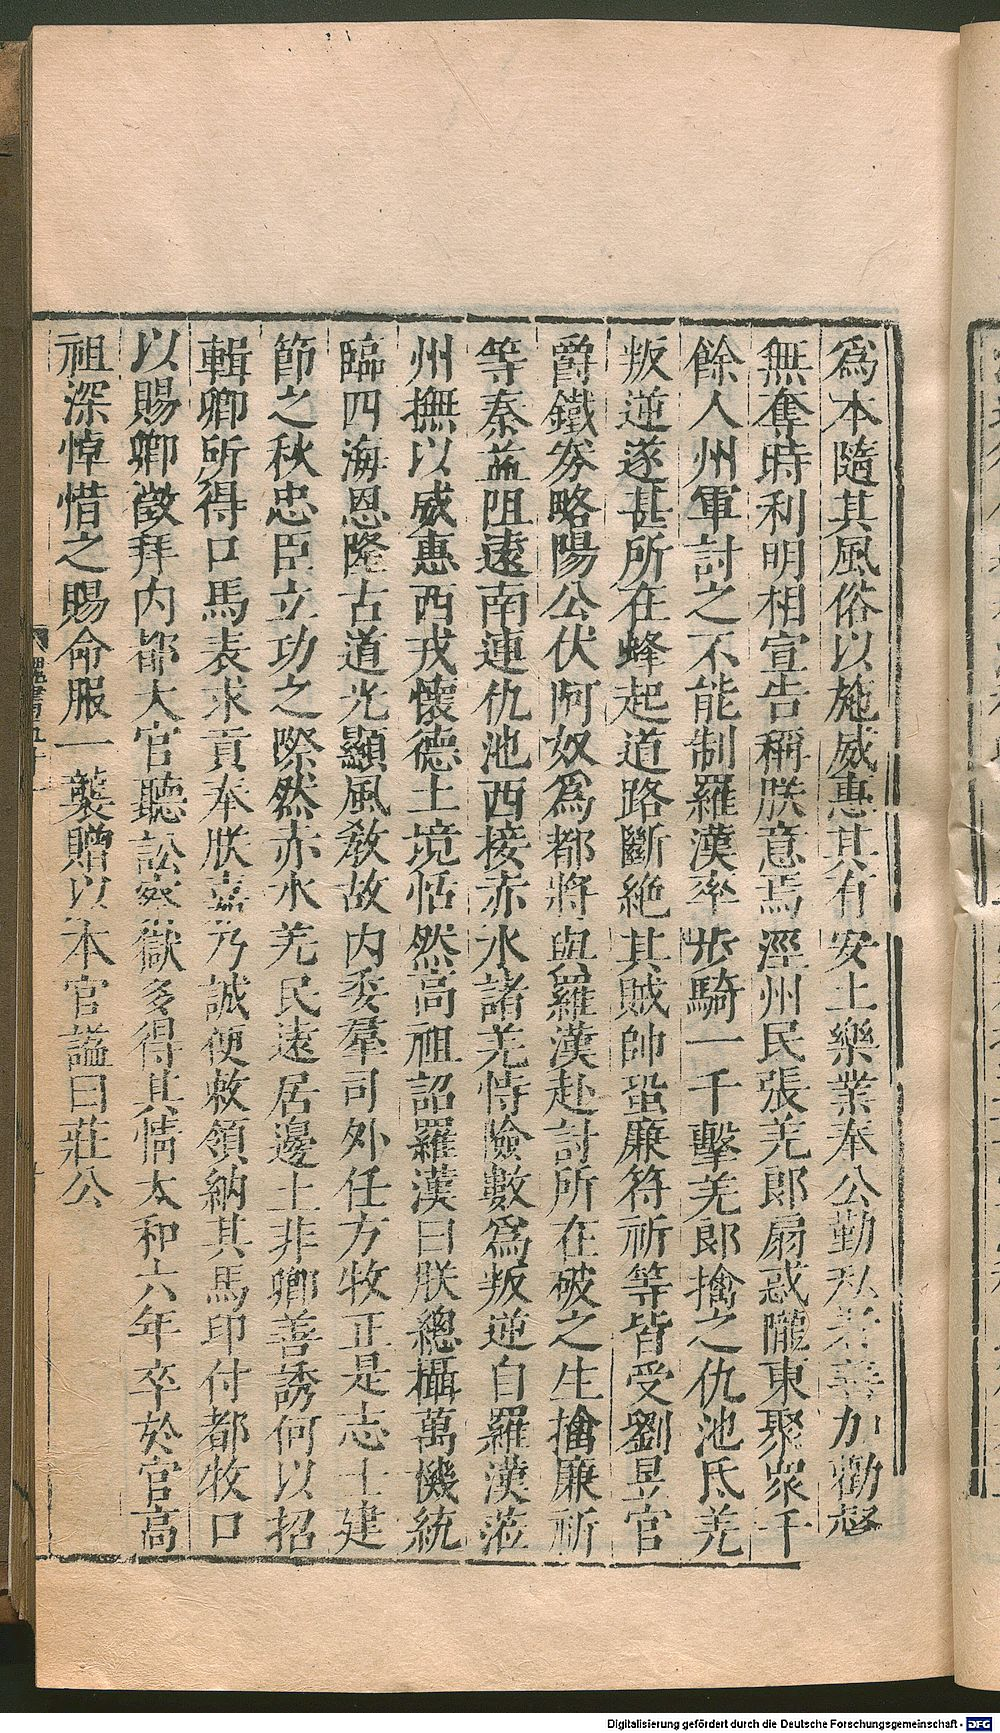 爲本隨其風俗以施威惠其有安土樂業奉公勤私者善加勸督
無奪時利明相宣告稱朕意焉涇州民張羌郎扇惑隴東聚衆千
餘人州軍討之不能制羅漢率步騎一千擊羌郎擒之仇池氐羌
叛逆遂甚所在蜂起道路斷絶其賊帥蛩廉符祈等皆受劉昱官
爵鐵券略陽公伏阿奴爲都將與羅漢赴討所在破之生擒廉祈
等秦益阻遠南連仇池西接赤水諸羌恃險數爲叛逆自羅漢蒞
州撫以威惠西戎懷德土境恬然高祖詔羅漢曰朕總攝萬機統
臨四海恩隆古道光顯風敎故内委羣司外任方牧正是志士建
節之秋忠臣立功之際然赤水羌民遠居邊土非卿善誘何以招
輯卿所得口馬表求貢奉朕嘉乃誠便敕領納其馬印付都牧口
以賜卿徵拜内都大官聽訟察獄多得其情太和六年卒於官高
祖深悼惜之賜命服一襲贈以本官謚曰莊公